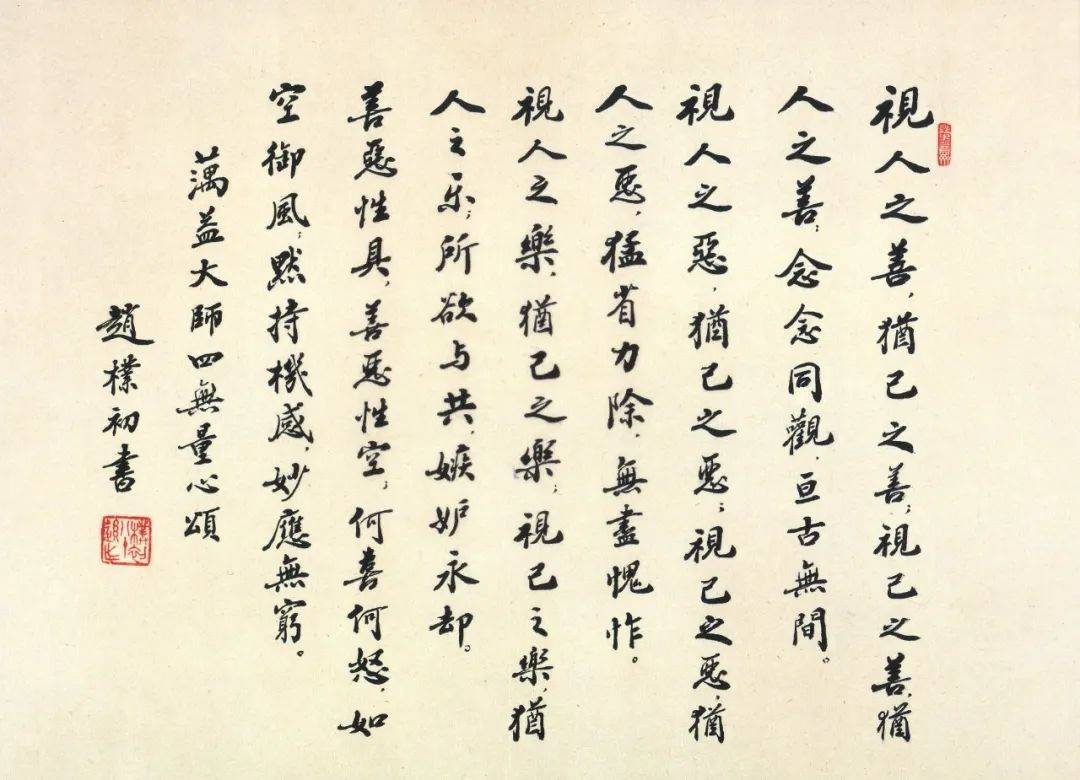 視人之善，猶己之善，視己之善，猶
人之善；念念同觀，亘古無間。
視人之惡，猶己之惡；視己之惡，猶
人之惡，猛省力除，無盡愧怍。
視人之樂，猶己之樂；視己之樂，猶
人之乐；所欲与共，嫉妒永却。
善惡性具，善惡性空，何喜何怒，如
空御風；默持機感，妙應無窮。
蕅益大師四無量心頌
趙樸初書